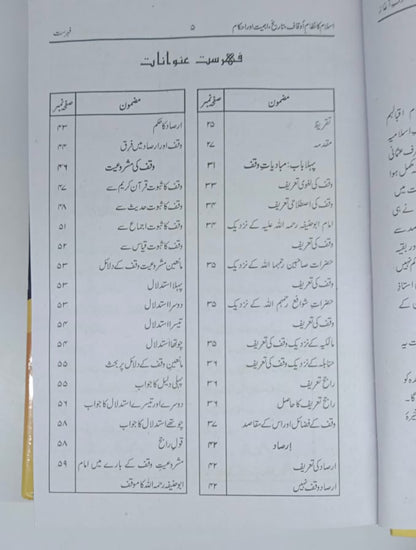 اسلام کا نظام اوقاف، تاریخ، اہمیت اور احکام ۵ فہرست
فہرست عنوانات
مضمون صفحہ نمبر
تقریظ ۲۵
مقدمہ ۲۷
پہلا باب: مبادیاتِ وقف ۳۱
وقف کی لغوی تعریف ۳۳
وقف کی اصطلاحی تعریف ۳۴
امام ابوحنیفہ رحمہ اللہ علیہ کے نزدیک ۳۴
وقف کی تعریف
حضرات صاحبین رحمہما اللہ کے نزدیک ۳۵
وقف کی تعریف
حضراتِ شوافع رحمہم اللہ کے نزدیک ۳۵
وقف کی تعریف
مالکیہ کے نزدیک وقف کی تعریف ۳۵
حنابلہ کے نزدیک وقف کی تعریف ۳۶
راجح تعریف ۳۶
راجح تعریف کا حاصل ۳۶
وقف کے فضائل اور اس کے مقاصد ۳۷
ارصاد ۴۲
ارصاد کی تعریف ۴۲
ارصاد وقف نہیں ۴۲
مضمون صفحہ نمبر
ارصاد کا حکم ۴۳
وقف اور ارصاد میں فرق ۴۴
وقف کی مشروعیت ۴۶
وقف کا ثبوت قرآن کریم سے ۴۷
وقف کا ثبوت حدیث سے ۴۸
وقف کا ثبوت اجماع سے ۵۱
وقف کا ثبوت قیاس سے ۵۲
مانعین مشروعیت وقف کے دلائل ۵۳
پہلا استدلال ۵۳
دوسرا استدلال ۵۳
تیسرا استدلال ۵۴
چوتھا استدلال ۵۴
مانعین وقف کے دلائل پر بحث ۵۵
پہلی دلیل کا جواب ۵۵
دوسرے اور تیسرے استدلال کا جواب ۵۶
چوتھے استدلال کا جواب ۵۸
قولِ راجح ۵۸
مشروعیتِ وقف کے بارے میں امام ۵۹
ابوحنیفہ رحمہ اللہ کا موقف